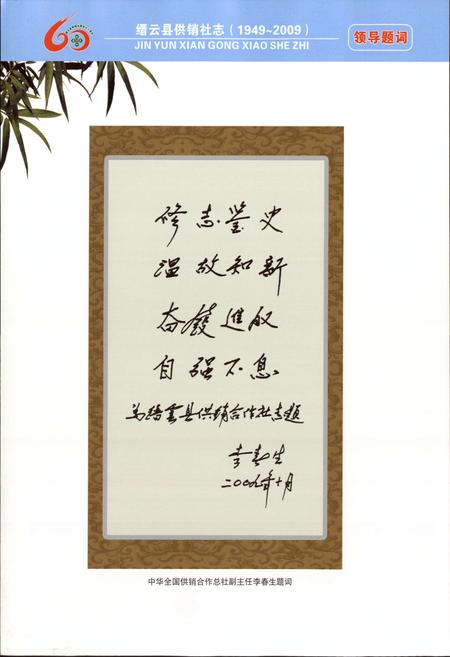 缙云县供销社志（1949~2009）
JIN YUN XIAN GONG XIAO SHE ZHI
领导题词
修志鉴史
温故知新
奋發進取
自强不息
为縉雲县供销合作社志题
李春生
二〇〇九年十月
中华全国供销合作总社副主任李春生题词